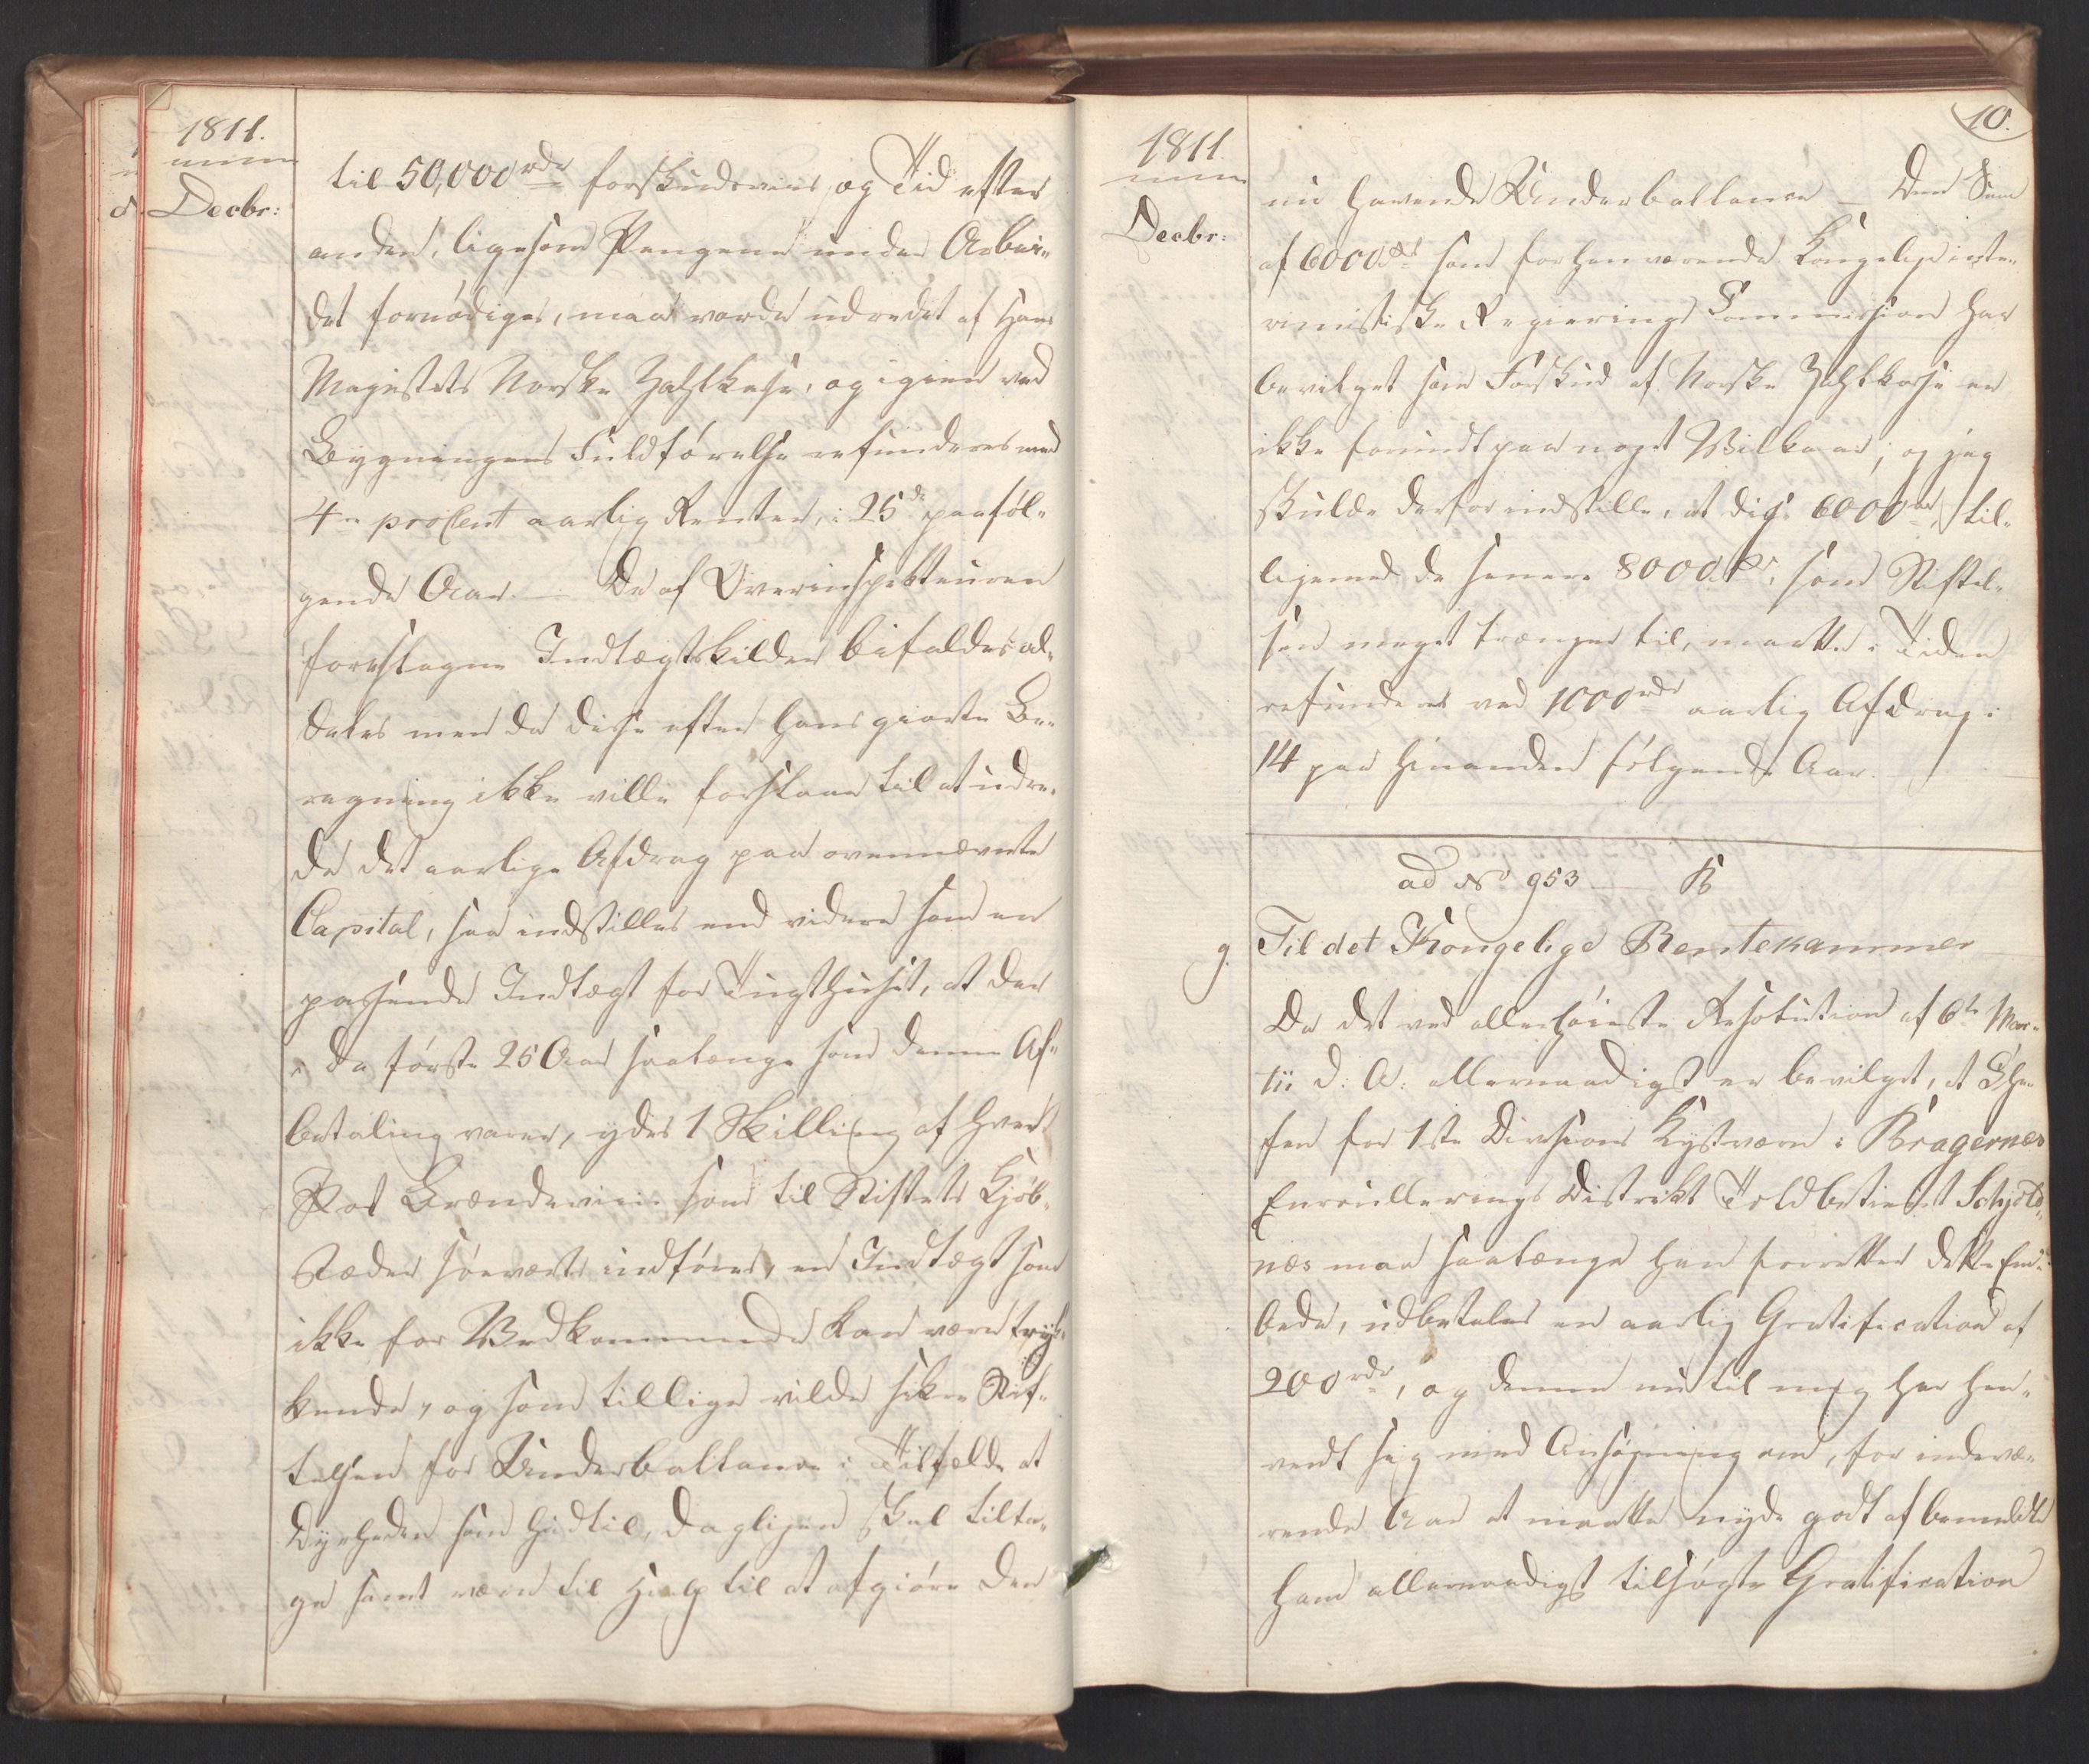 1811.
Decbr:
til 50,000 rdr forskudsviis og Tid efter
anden, ligesom Pengene under Arbei-
det fornødiges, maa vorde udredet af Hans
Majestets Norske Zahlkasse, og igien ved
Bygningens Fuldførelse refunderes med
4re procent aarlig Renter, i 25de paaføl-
gende Aar. — De af Overinspekteuren
foreslagne Indtægtskilder bifaldes al-
deles men da disse efter hans giorte Be-
regning ikke ville forslaae til at udre-
de det aarlige Afdrag paa ovennævnte
Capital, saa indstilles end videre som en
passende Indtægt for Tugthuset, at der
i de første 25 Aar saalænge som denne Af-
betaling varer, ydes 1 Skilling af hver
Pot Brændeviin som til Stiftets Kjøb-
stæder søeværts indføres, en Indtægt som
ikke for Vedkommende kan være tryk-
kende, og som tillige vilde sikre Stif-
telsen for Underballance i Tilfælde at
Dyrheden som hidtil, dagligen skal tilta-
ge samt være til Hielp til at afgiøre den
10.
1811.
Decbr:
nu havende Underballance — Den Sum
af 6000 rdr som forhenværende Kongelige inte-
rimistiske Regierings Commission har
bevilget som Forskud af Norske Zahlkasse er
ikke forundt paa noget Vilkaar, og jeg
skulde derfor indstille, at disse 6000 rdr, til-
ligemed de senere 8000 rdr, som Stiftel-
sen meget trænger til, maatte i Tiden
refunderes ved 1000 rdr aarlig Afdrag i
14 paa hinanden følgende Aar.
ad No 953 — B
9. Til det Kongelige Rentekammer
Da det ved allerhøieste Resolution af 6te Mar-
tii d: A: allernaadigst er bevilget, at Che-
fen for 1ste Divisions Kystværn i Bragernes
Enroullerings Distrikt Toldbetient Schjold-
nes maa saalænge han forretter dette Em-
bede, udbetales en aarlig Gratification af
200 rdr, og denne nu til mig har hen-
vendt sig med Ansøgning om, for indevæ-
rende Aar at maatte nyde godt af bemeldte
ham allernaadigst tilsagte Gratification